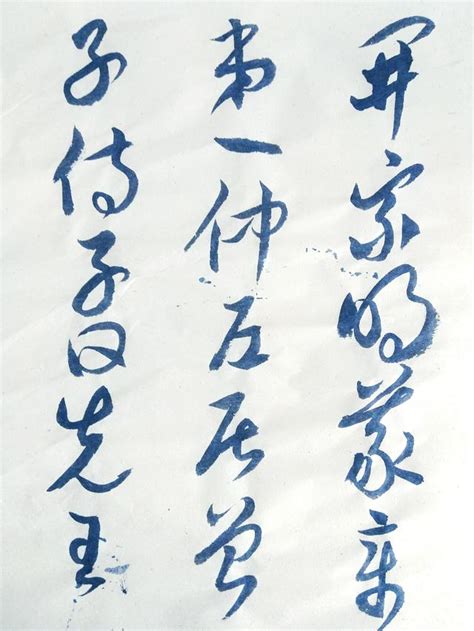 開宗明義章
第一仲尼居曾
子侍子曰先王